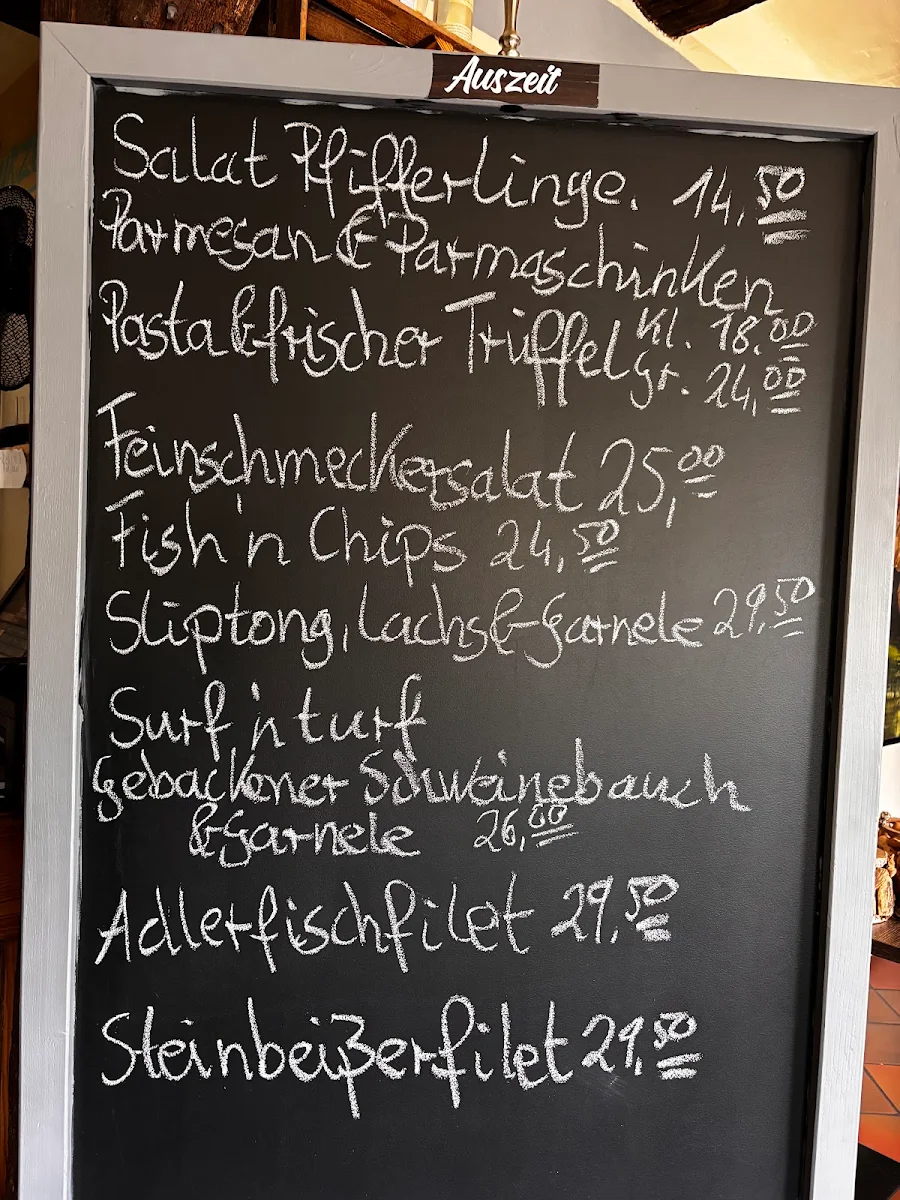 Auszeit
Salat Pfifferlinge. 14,50
Parmesan & Parmaschinken
Pasta & frischer Trüffel Kl. 18,00
gr. 24,00
Feinschmeckersalat 25,00
Fish 'n Chips 24,50
Sliptong, Lachs & Garnele 29,50
Surf 'n turf
gebackener Schweinebauch
& Garnele 26,00
Adlerfischfilet 29,50
Steinbeißerfilet 29,50